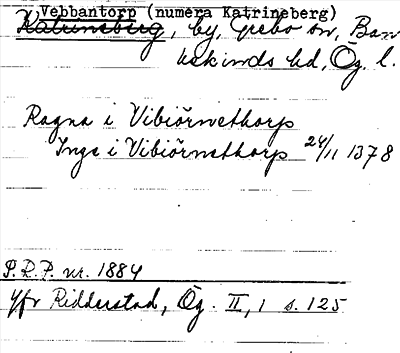 Vebbantorp (numera Katrineberg)
Katrineberg, by, Grebo sn, Ban
kekinds hd, Ög. l.
Ragna i Vibiörnethorp
Inge i Vibiörnethorp 24/11 1378
P.R.P. nr. 1884
Jfr Ridderstad, Ög. II, 1 s. 125